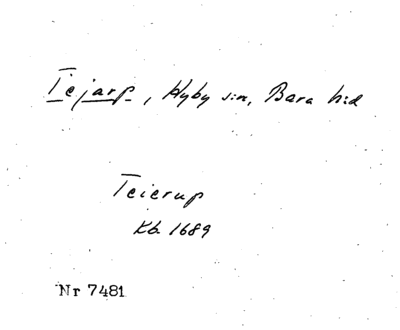 Tejarp, Hyby s:n, Bara h:d
Teierup
Kb 1689
Nr 7481